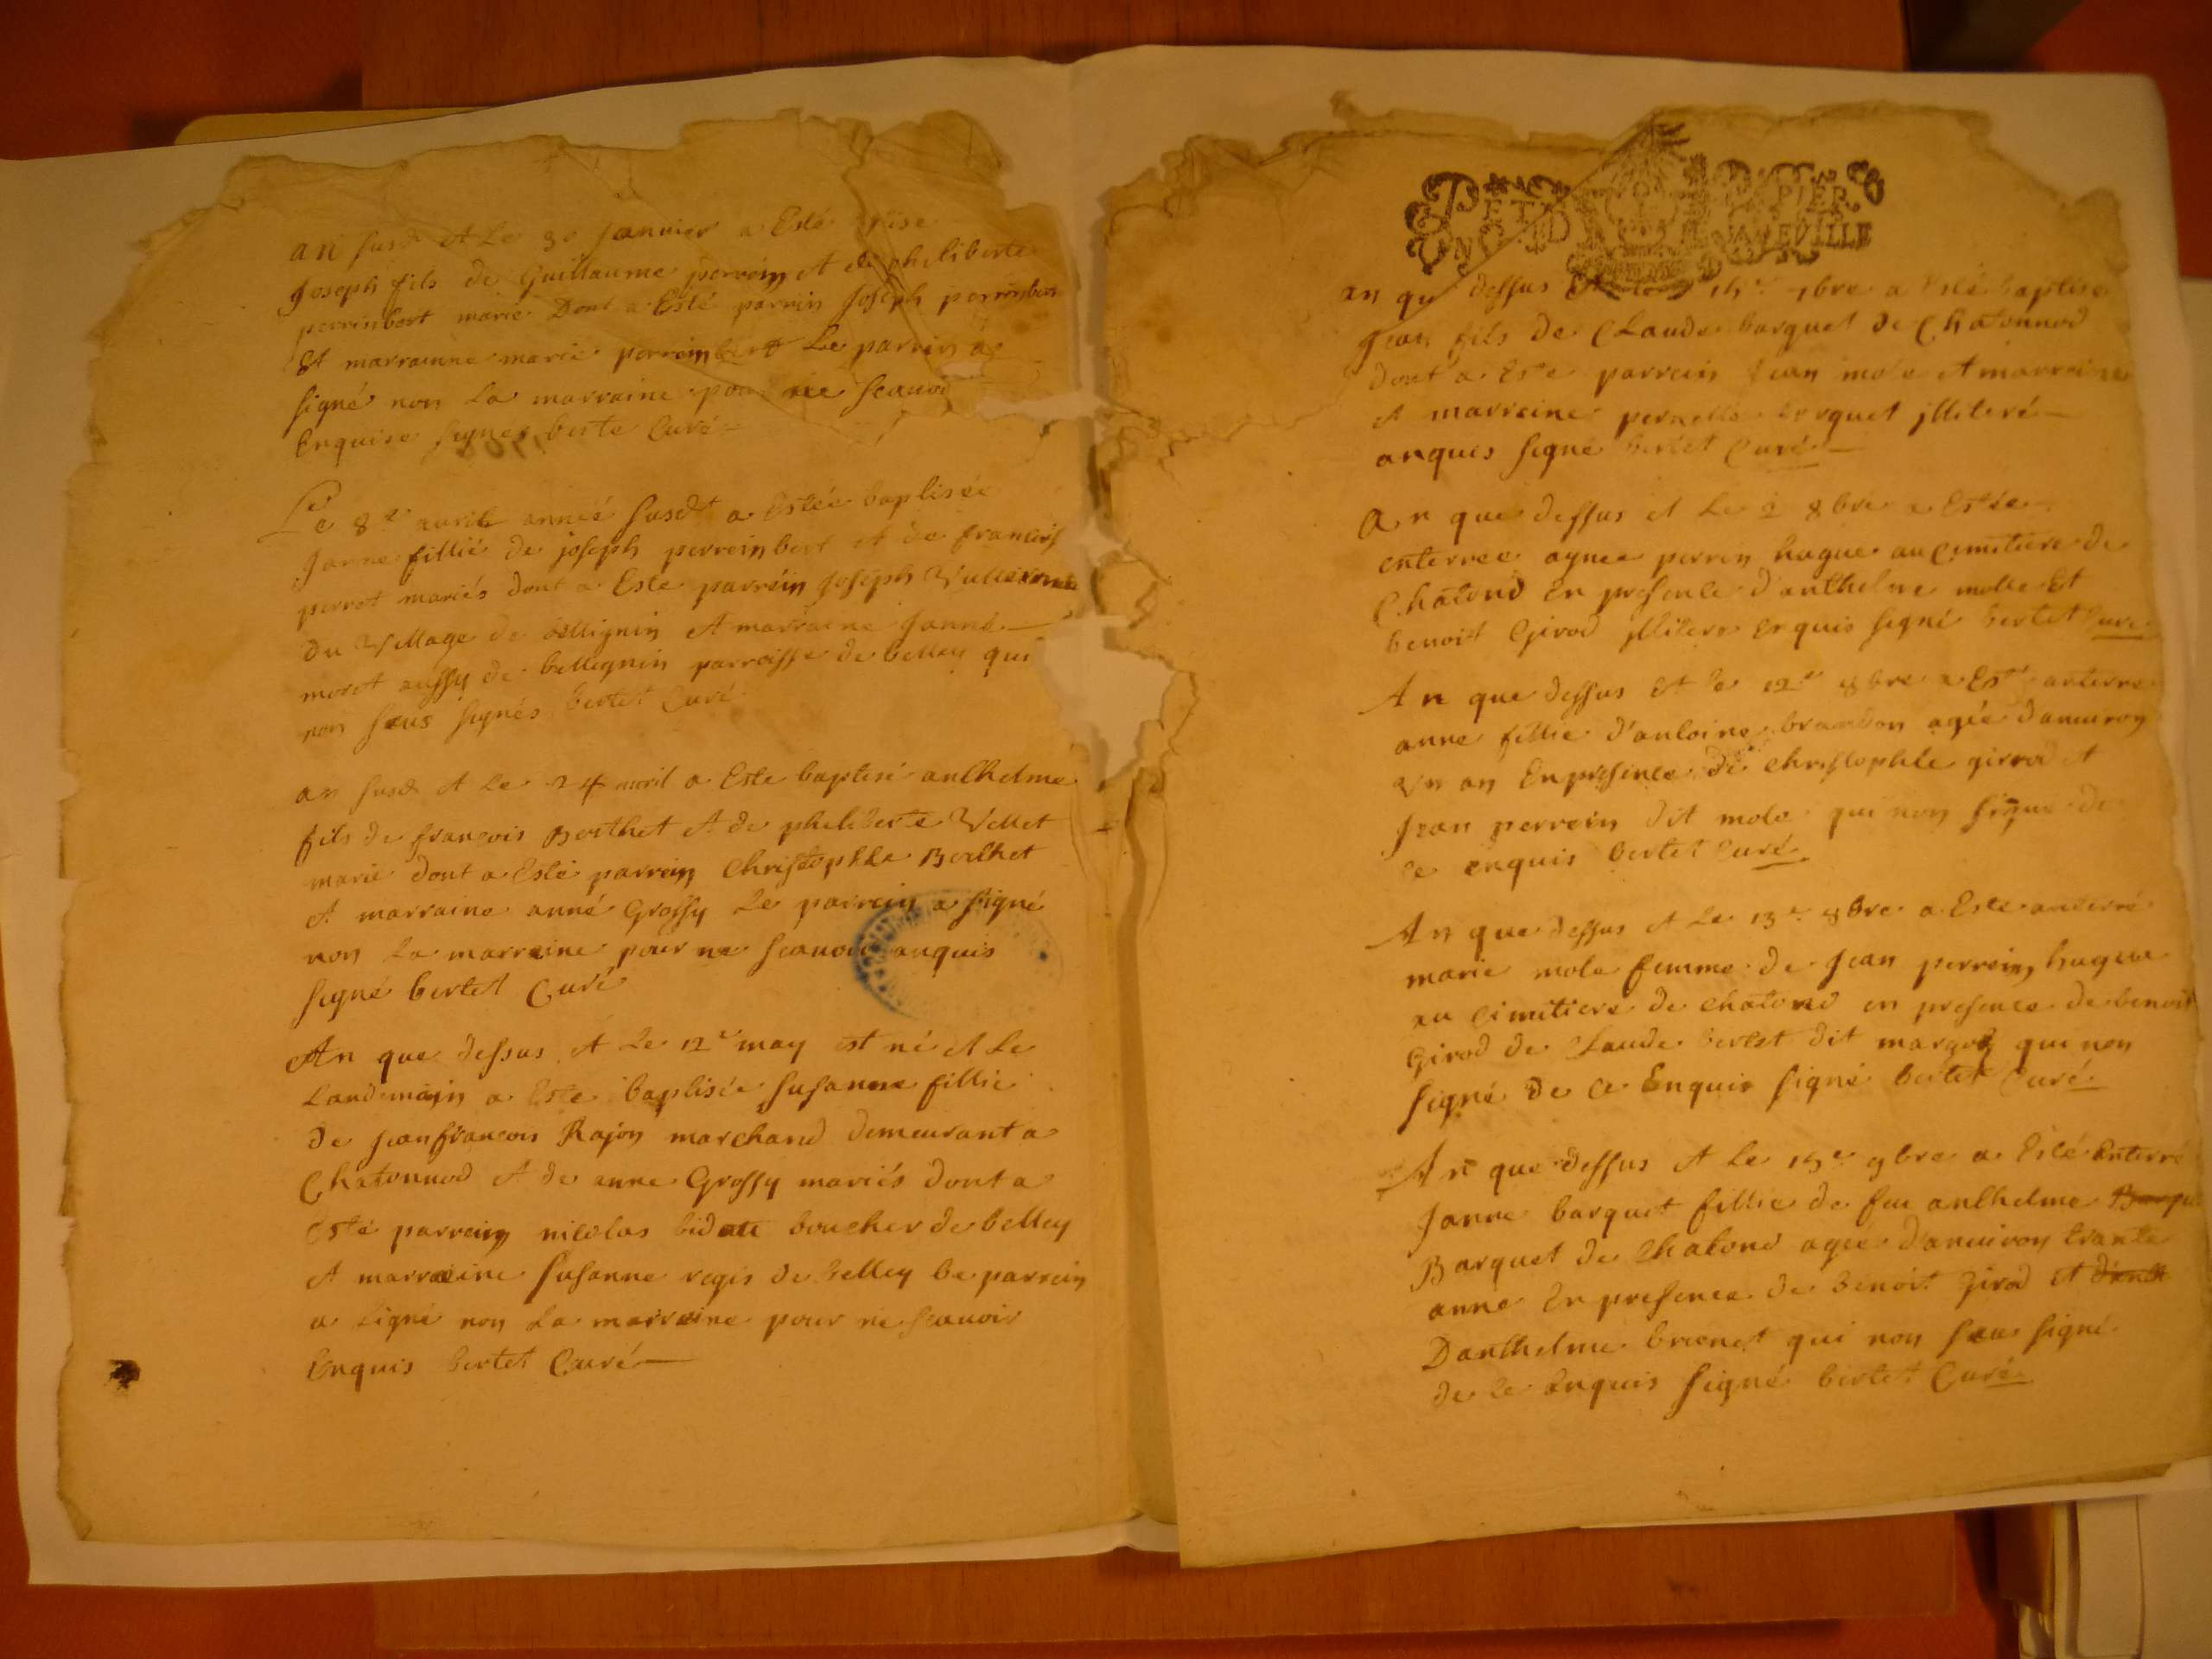 an susd et Le 30 Janvier a Esté
Joseph fils de Guillaume perrein et de pheliberte
perreinbert marié Dont a Esté parrein Joseph perreinbert
Et marrainne marie perreinbert Le parrein a
signé non La marraine pour ne scauoir
Enquise signe berte Curé
Le 8e avril année susdt a Estée baptisée
Janne fillie de joseph perreinbert et de francois
perrot mariés dont a Este parrein Joseph
Du Village de bellignin et marraine Janne
moret aussy de bellegnin parroisse de belley qui
non sceus signés bertet Curé
an susd et Le 24 avril a Este baptisé anthelme
fils de francois Berthet et de pheliberte Vellet
marié dont a Esté parrein Christophle Berthet
et marraine anne Grossy Le parrein a signé
non La marraine pour ne scauoir anquis
signé bertet Curé
An que dessus et Le 12e may est né et Le
Landemain a Este baptisée susanne fillie
de jeanfrancois Rajon marchand demeurant a
Chatonnod et de anne Grossy mariés dont a
Esté parrein nicolas bidau boucher de belley
et marraine susanne regis de belley Le parrein
a signé non La marraine pour ne scauoir
Enquis bertet Curé
PETIT PAPIER
UN SOL D LA FEVILLE
an que dessus 7bre a Esté baptisé
Jean fils de Claude barquet de Chatonnod
dont a Esté parrein Jean mole et marreine
et marreine pernette barquet jlliteré
anquis signé bertet Curé
An que dessus et Le 2 8bre a Estée
enterree aynee perrin hague au cimitiere de
Chatond En presence d'anthelme molle Et
benoit Girod jlliters Enquis signé bertet Curé
An que dessus Et le 12e 8bre a Esté anterre
anne fillie d'antoine agée danuiron
Vn an En presence de christophle girrod et
Jean perrein dit mole qui non signe de
ce enquis bertet Curé
An que dessus et Le 13e 8bre a Este anterré
marie mole femme de Jean perrein hague
au Cimitiere de chatond en presence de benoit
Girod de Claude bertet dit qui non
signé de ce Enquis signé bertet Curé
An que dessus et Le 15e 9bre a Esté Enterré
Janne barquet fillie de feu anthelme
Barquet de Chatond agée danuiron trante
anne En presence de benoit Girod et
Danthelme qui non sceu signé
de ce Enquis signé bertet Curé